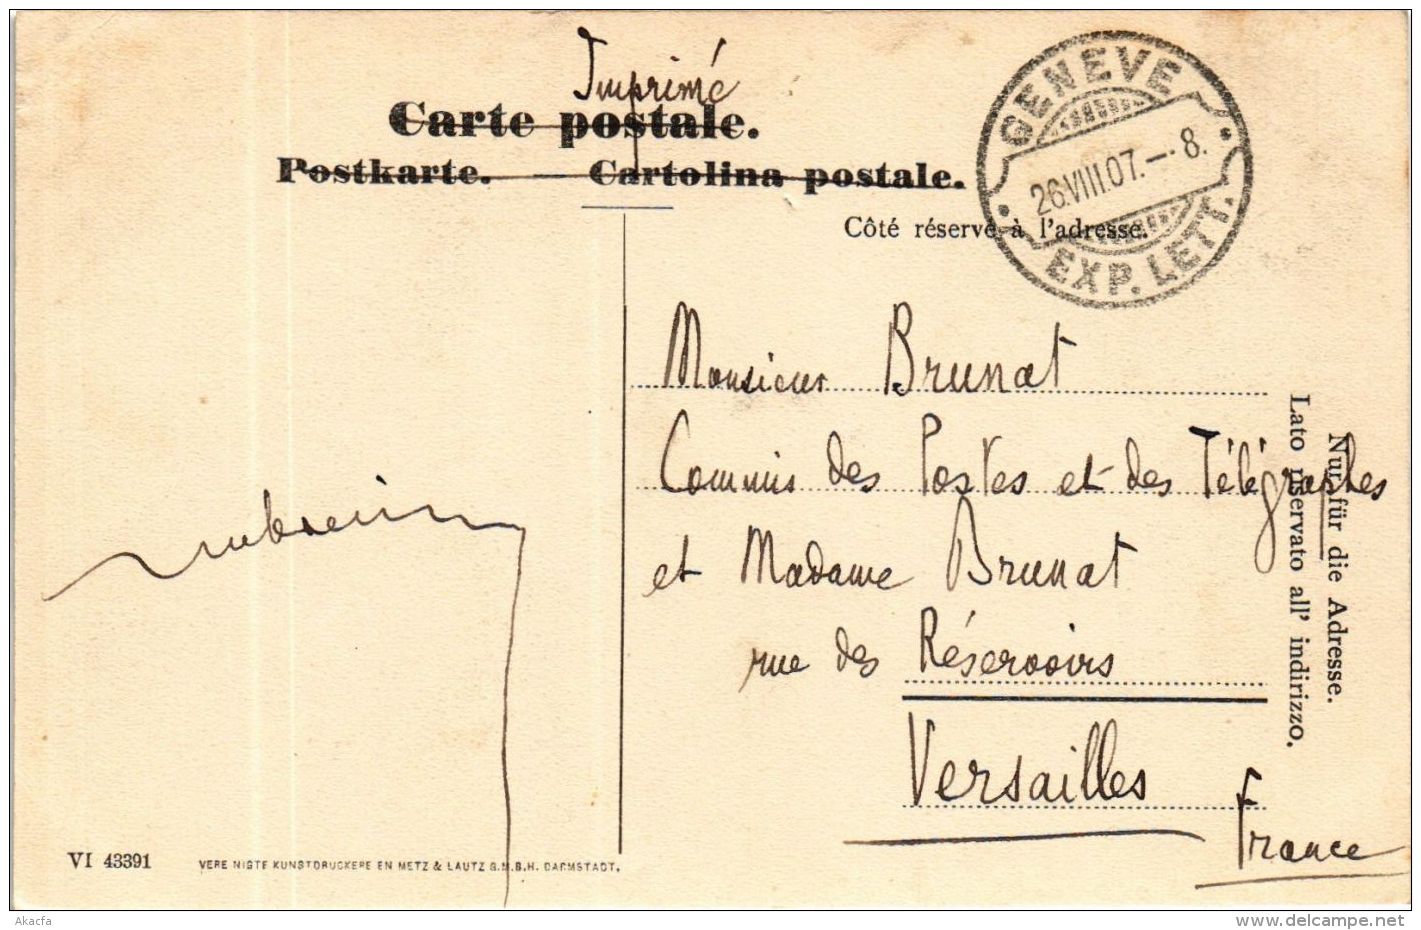 Imprimé
Carte postale.
Postkarte. — Cartolina postale.
Côté réservé à l'adresse.
GENEVE
26.VIII.07.—8.
EXP. LETT.
Monsieur Brunat
Commis des Postes et des Télégraphes
et Madame Brunat
rue des Réservoirs
Versailles
France
Nur für die Adresse.
Lato riservato all' indirizzo.
VI 43391
VEREINIGTE KUNSTDRUCKEREIEN METZ & LAUTZ G.M.B.H. DARMSTADT.
Akacfa
delcampe.net